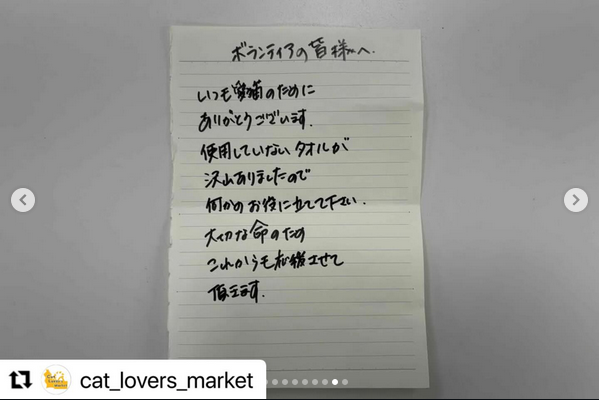 ボランティアの皆様へ.
いつも猫のために
ありがとうございます.
使用していないタオルが
沢山ありましたので
何かのお役に立てて下さい.
大切な命のため
これからも応援させて
頂きます.
cat_lovers_market